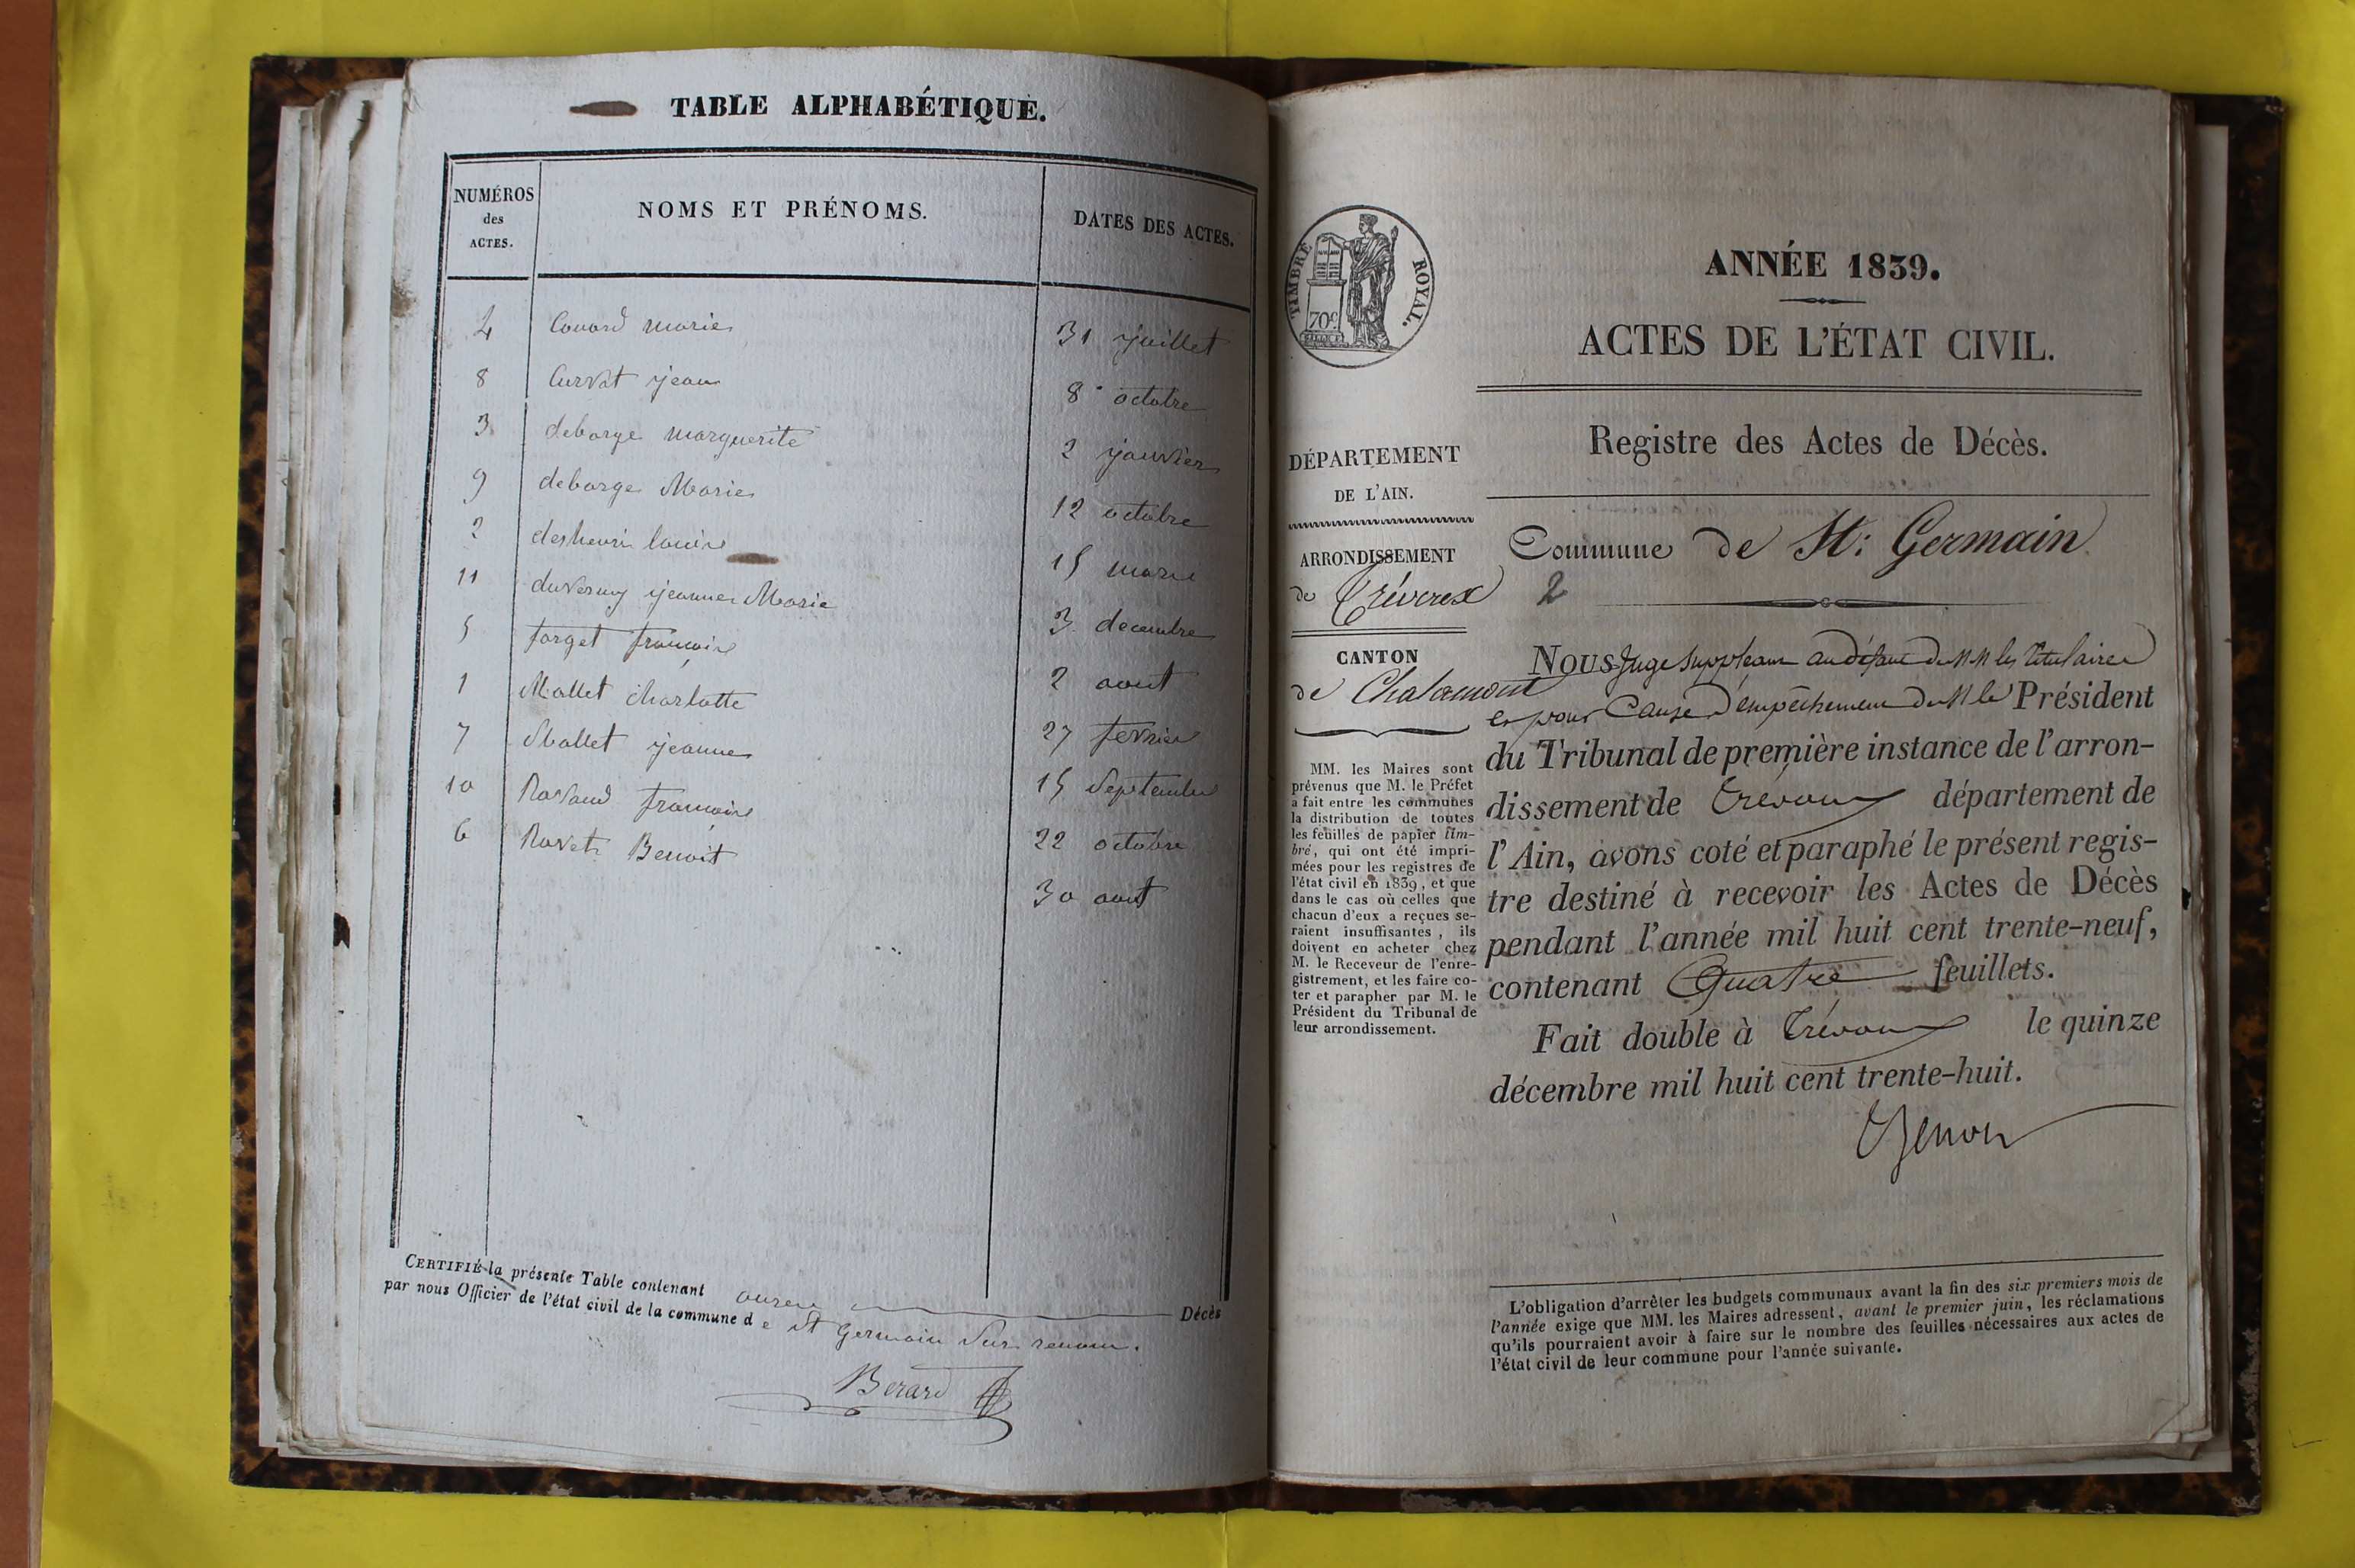 TABLE ALPHABÉTIQUE.
NUMÉROS des ACTES. NOMS ET PRÉNOMS. DATES DES ACTES.
4 Couard marie 31 juillet
8 Curvat jean 8 octobre
3 deborge marguerite 2 janvier
9 deborge Marie 12 octobre
2 15 mars
11 duverny jeanne Marie 3 decembre
5 forget francoise 2 aout
1 Mallet charlotte 27 fevrier
7 Mallet jeanne 15 Septembre
10 Ravaud francoise 22 octobre
6 Ravet Benoit 30 aout
CERTIFIÉ la présente Table contenant onze Décès
par nous Officier de l'état civil de la commune de St Germain Sur renom.
Berard
TIMBRE ROYAL.
70c
ANNÉE 1839.
ACTES DE L'ÉTAT CIVIL.
Registre des Actes de Décès.
DÉPARTEMENT
DE L'AIN.
ARRONDISSEMENT
de Trévoux
CANTON
de Chalamont
MM. les Maires sont
prévenus que M. le Préfet
a fait entre les communes
la distribution de toutes
les feuilles de papier tim-
bré, qui ont été impri-
mées pour les registres de
l'état civil en 1839, et que
dans le cas où celles que
chacun d'eux a reçues se-
raient insuffisantes, ils
doivent en acheter chez
M. le Receveur de l'enre-
gistrement, et les faire co-
ter et parapher par M. le
Président du Tribunal de
leur arrondissement.
Commune de St: Germain
2
NOUS Juge Suppleant au défaut de MM les titulaires
et pour Cause d'empêchement de M le Président
du Tribunal de première instance de l'arron-
dissement de Trévoux département de
l'Ain, avons coté et paraphé le présent regis-
tre destiné à recevoir les Actes de Décès
pendant l'année mil huit cent trente-neuf,
contenant Quatre feuillets.
Fait double à Trévoux le quinze
décembre mil huit cent trente-huit.
L'obligation d'arrêter les budgets communaux avant la fin des six premiers mois de
l'année exige que MM. les Maires adressent, avant le premier juin, les réclamations
qu'ils pourraient avoir à faire sur le nombre des feuilles nécessaires aux actes de
l'état civil de leur commune pour l'année suivante.